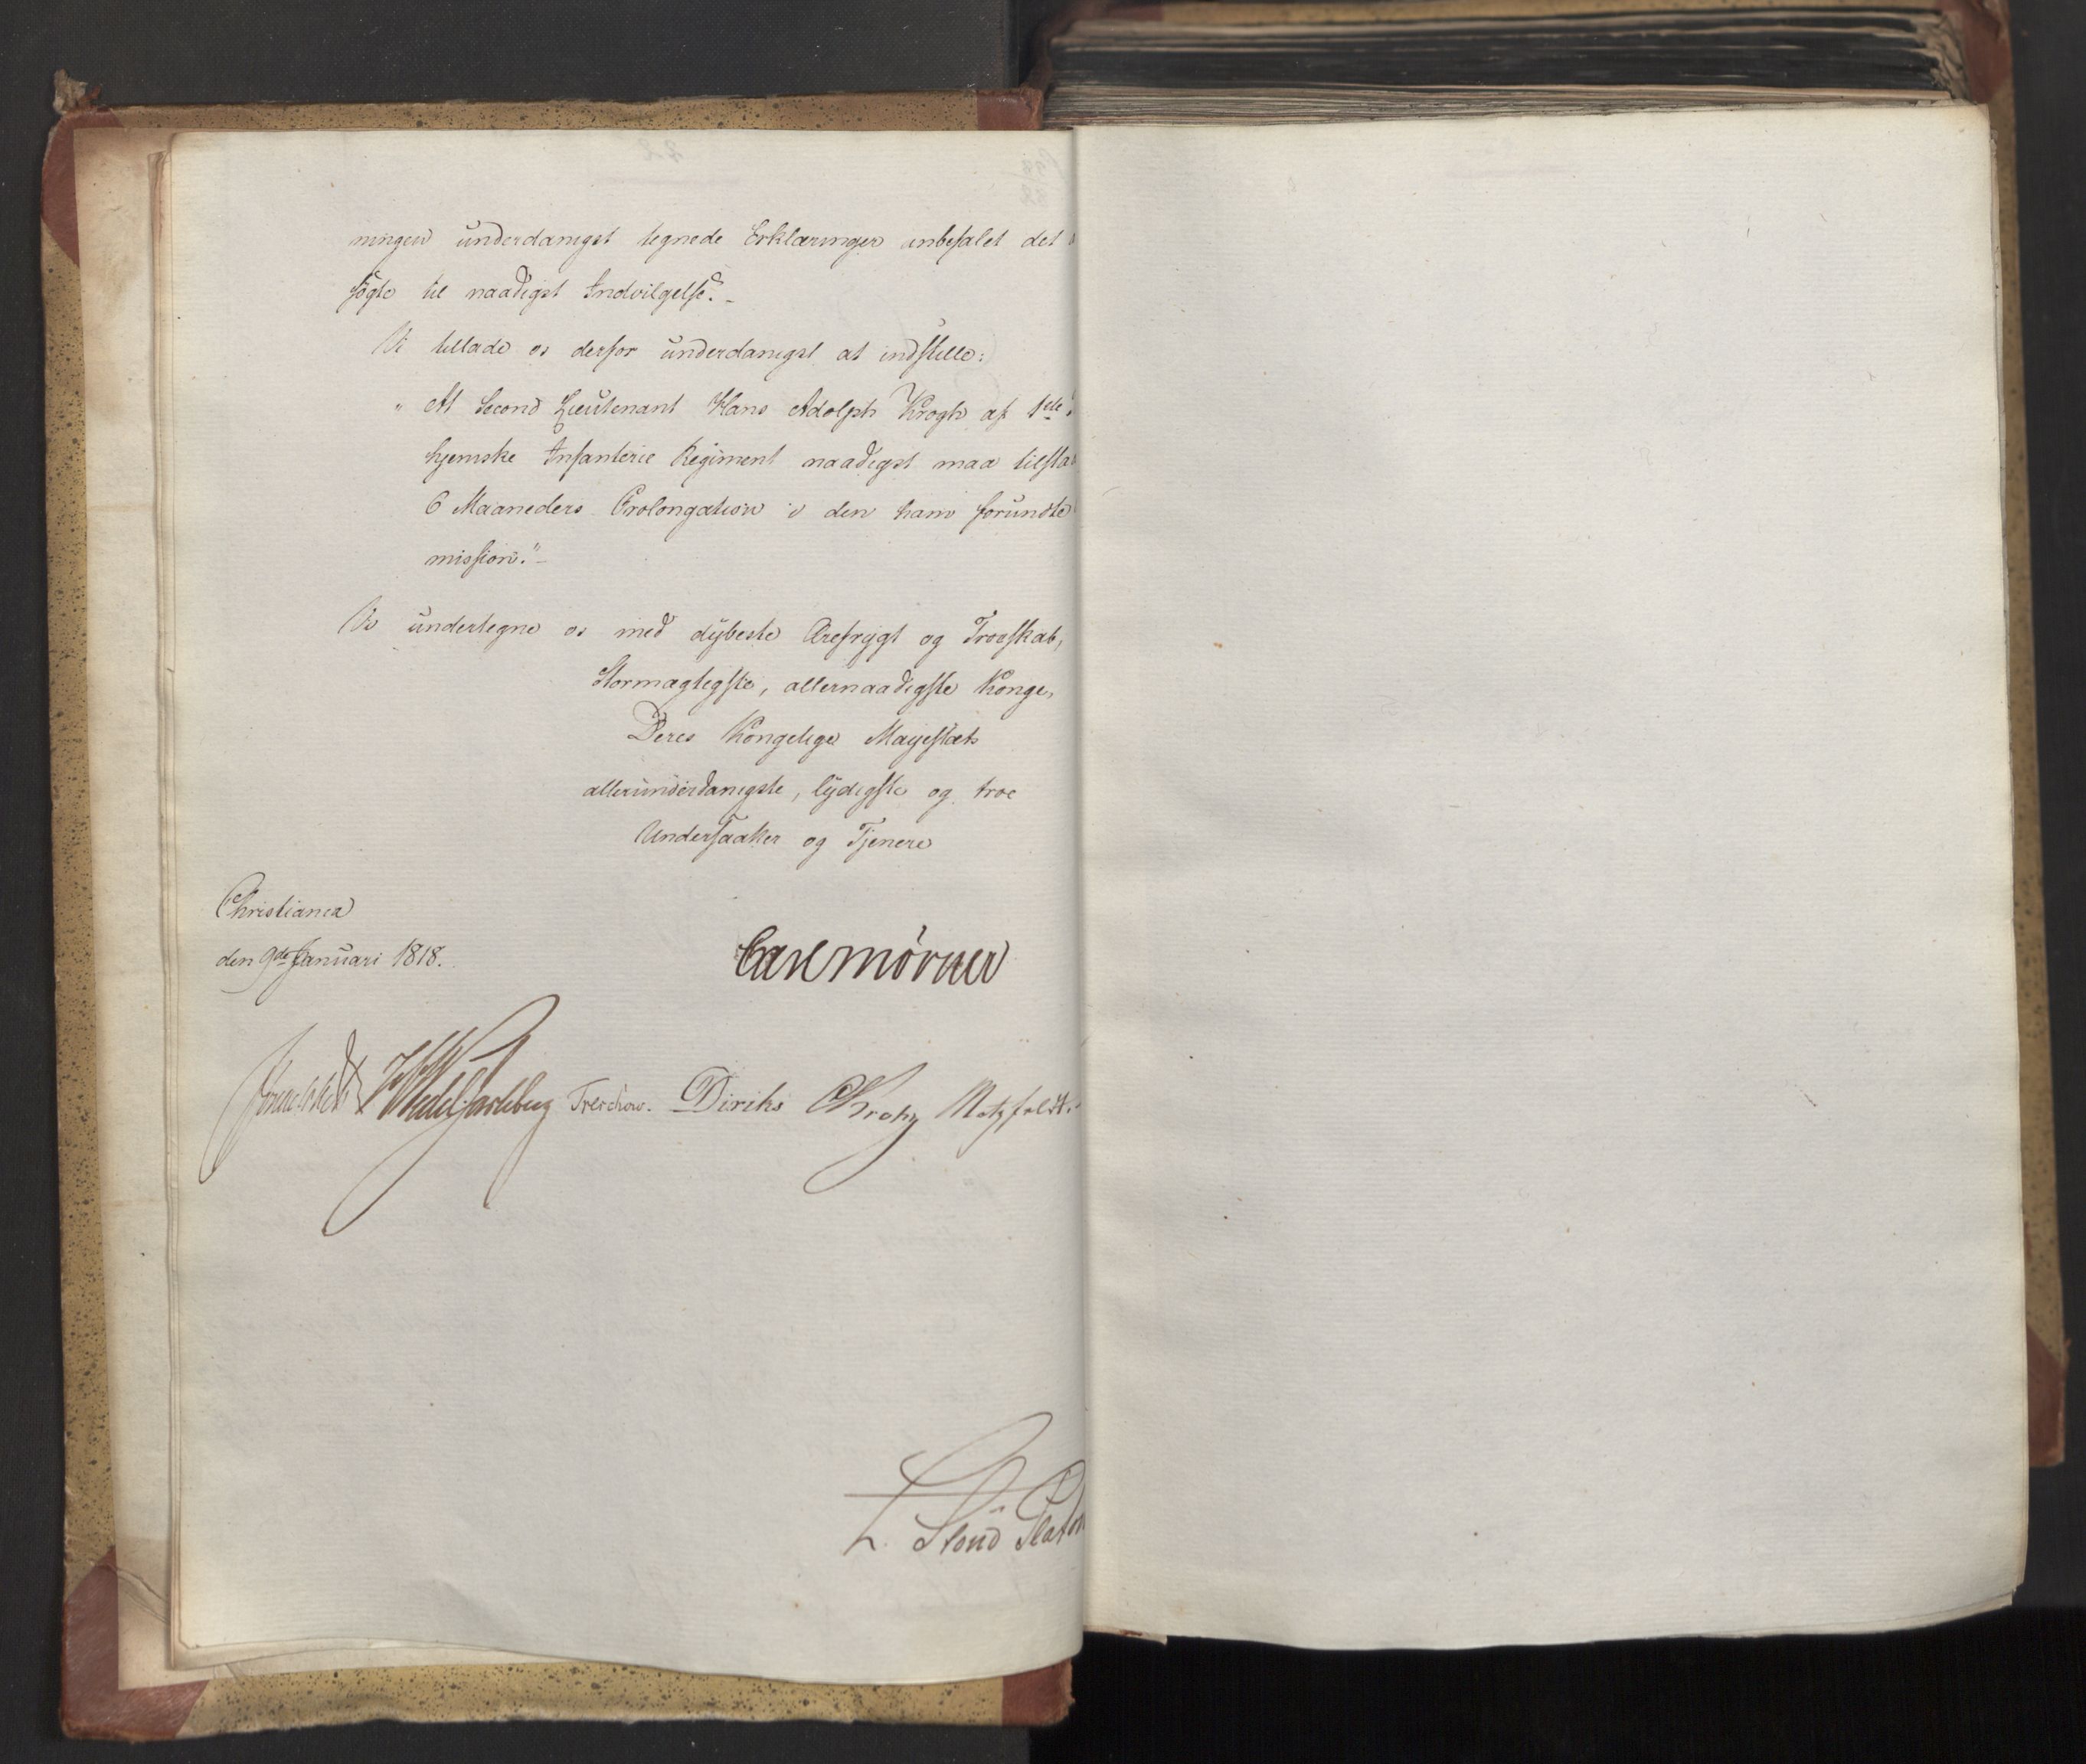 ningen underdanigst tegnede Erklæringer anbefalet det
søgte til naadigst Indvilgelse. -
Vi tillade os derfor underdanigst at indstille:
" At Second Lieutenant Hans Adolph Krogh af 1ste
hjemske Infanterie Regiment naadigst maa tilstaa
6 Maaneders Prolongation i den ham forundte
mission." -
Vi undertegne os med dybeste Ærefrygt og Troeskab,
Stormægtigste, allernaadigste Konge,
Deres Kongelige Majestæts
allerunderdanigste, lydigste og troe
Undersaatter og Tjenere
Christiania
den 9de Januari 1818.
Carl Mörner
Sommerhielm HWedel Jarlsberg Treschow. Diriks CKrohg Motzfeldt.
L. Stoud Platou